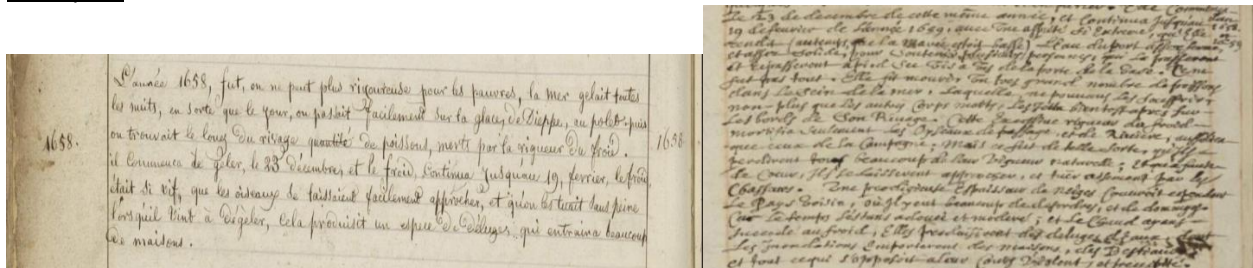 1658.
L'année 1658, fut, on ne peut plus rigoureuse pour les pauvres, la mer gelait toutes
les nuits, en sorte que le jour, on passait facilement sur la glace, de Dieppe, au polet. puis
on trouvait le long du rivage quantité de poissons, morts par la rigueur du froid.
il commença de geler, le 23 décembre, et le froid, continua jusqu'au 19, fevrier, le froid,
était si vif, que les oiseaux se laissaient facilement approcher, et qu'on les tuait sans peine
lorsqu'il vint à dégeler, cela produisit un espece de déluges, qui entraina beaucoup
de maisons.
1658
le 23 de decembre de cette même année, et continua jusqu'au
19 de fevrier de l'année 1659, avec une aspreté si extreme, qu'elle
rendit (autemps que la marée estoit basse) l'eau du port assez ferme,
et assez solide, pour soutenir plusieurs personnes, qui le passerent
et repasserent à pied sec vis à vis de la porte de la Base. Ce ne
fut pas tout. Elle fit mourir un tres grand nombre de poissons
dans le sein de la mer. Laquelle, ne pouvant les souffrir
non-plus que les autres corps morts, les jetta bientost apres sur
les bords de son Rivage. Cette excessive rigueur du froid
mortifia seulement les Oyseaux de passage, et de Riviere,
que ceux de la Campagne; mais ce fut de telle sorte, qu'ils
perdirent beaucoup de leur vigueur naturelle;
de coeur, ils se laisserent approcher, et tuer aisement par les
Chasseurs. Une prodigieuse Espaisseur de neiges couvroit cependant
le Pays voisin, où il y eut beaucoup de desordres, et de dommage
Car le temps s'estant adouci et moderé; et le Chaud ayant
succedé au froid; Elles produisirent des deluges d'eaux, dont
les Inondations emporterent des maisons, des Bestiaux
et tout ce qui s'opposoit à leur